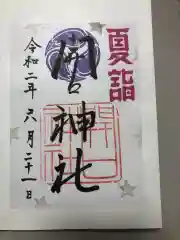 夏詣
開口神社
令和二年六月二十一日